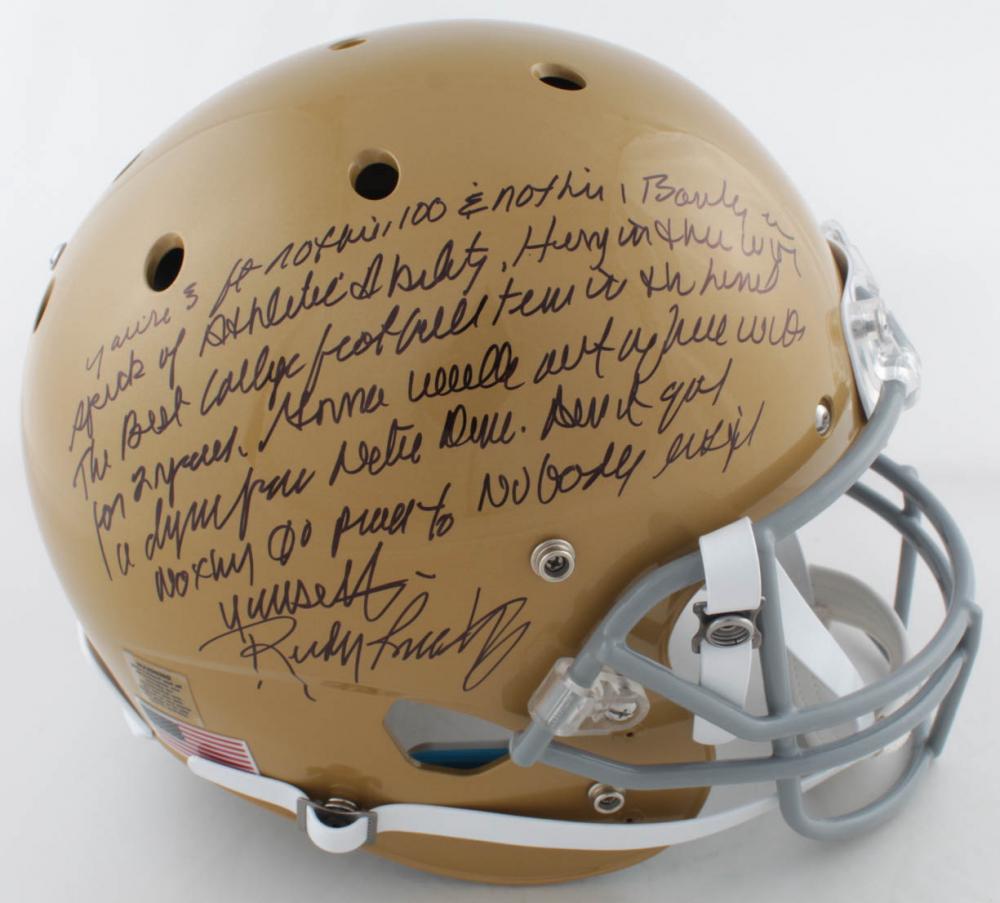 you're 5 ft nothin, 100 & nothin, Barely a
speck of Athletic Ability. Hung in there with
The Best College football team in the land
for 2 years. Gonna walk out of here with
a degree from Notre Dame. Don't got
Nothing to prove to Nobody except
yourself.
Rudy Ruettiger